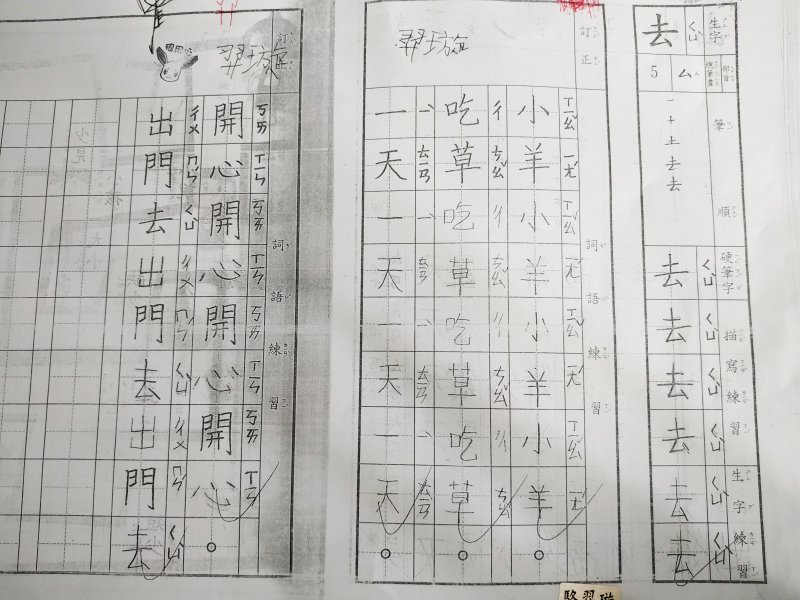 生字
去 ㄑㄩˋ
部首
總筆畫
ㄙ
5
筆順
一
十
土
去
去
硬筆字描寫練習
去 ㄑㄩˋ
去 ㄑㄩˋ
去 ㄑㄩˋ
去 ㄑㄩˋ
生字練習
去 ㄑㄩˋ
去 ㄑㄩˋ
訂正
羿璇
詞語練習
小羊小羊小羊小羊。
ㄒㄧㄠˇ ㄧㄤˊ ㄒㄧㄠˇ ㄧㄤˊ ㄒㄧㄠˇ ㄧㄤˊ ㄒㄧㄠˇ ㄧㄤˊ
吃草吃草吃草吃草。
ㄔ ㄘㄠˇ ㄔ ㄘㄠˇ ㄔ ㄘㄠˇ ㄔ ㄘㄠˇ
一天一天一天一天。
ㄧˋ ㄊㄧㄢ ㄧˋ ㄊㄧㄢ ㄧˋ ㄊㄧㄢ ㄧˋ ㄊㄧㄢ
訂正
羿璇
詞語練習
開心開心開心開心。
ㄎㄞ ㄒㄧㄣ ㄎㄞ ㄒㄧㄣ ㄎㄞ ㄒㄧㄣ ㄎㄞ ㄒㄧㄣ
出門去出門去出門去
ㄔㄨ ㄇㄣˊ ㄑㄩˋ ㄔㄨ ㄇㄣˊ ㄑㄩˋ ㄔㄨ ㄇㄣˊ ㄑㄩˋ